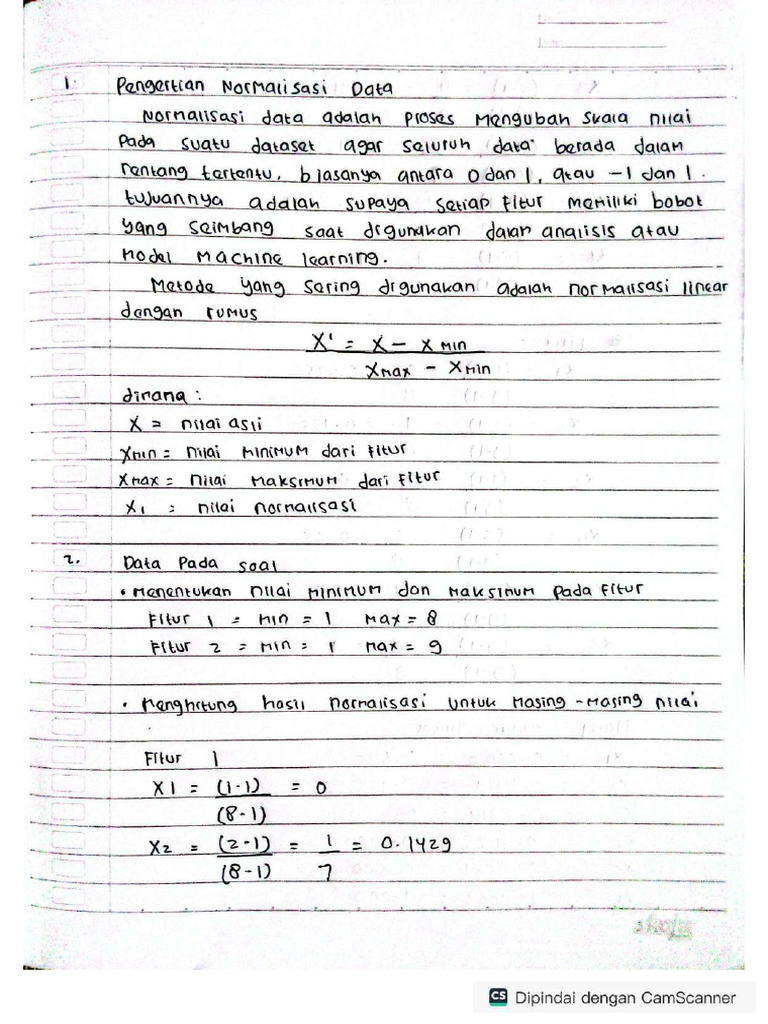 1. Pengertian Normalisasi Data
Normalisasi data adalah proses mengubah skala nilai
pada suatu dataset agar seluruh data berada dalam
rentang tertentu, biasanya antara 0 dan 1, atau -1 dan 1.
tujuannya adalah supaya setiap fitur memiliki bobot
yang seimbang saat digunakan dalam analisis atau
model machine learning.
Metode yang sering digunakan adalah normalisasi linear
dengan rumus
X' = X - X min
X max - X min
dimana :
X = nilai asli
X min = nilai minimum dari fitur
X max = nilai maksimum dari fitur
X1 = nilai normalisasi
2. Data pada soal
• menentukan nilai minimum dan maksimum pada fitur
Fitur 1 = min = 1 max = 8
Fitur 2 = min = 1 max = 9
• menghitung hasil normalisasi untuk masing-masing nilai
Fitur 1
X1 = (1-1) = 0
(8-1)
X2 = (2-1) = 1 = 0.1429
(8-1) 7
CS Dipindai dengan CamScanner